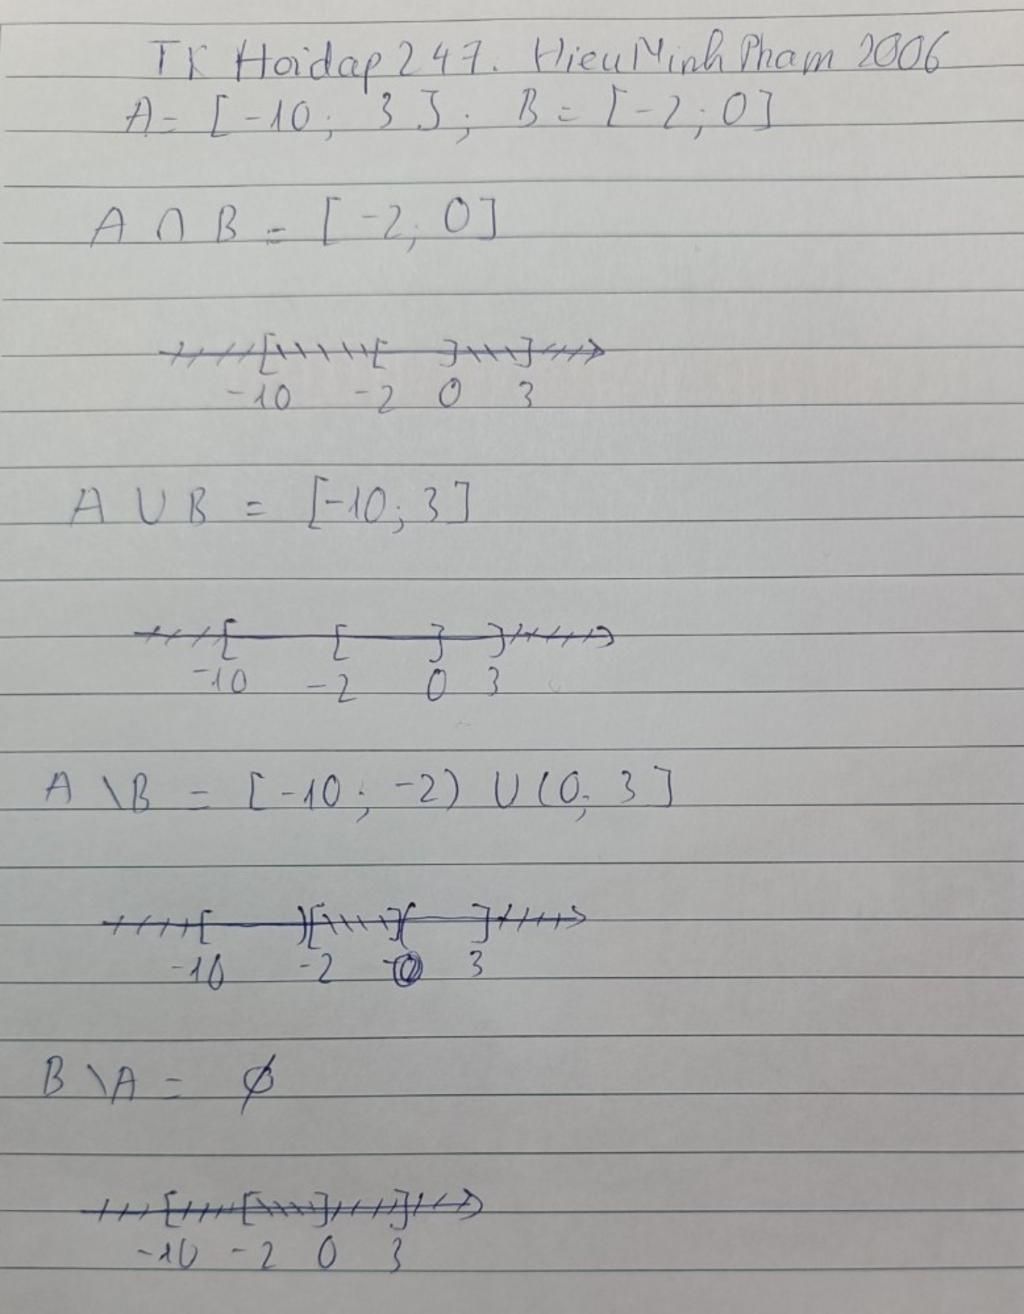 TK Hoidap247. HieuMinhPham 2006
A = [-10; 3]; B = [-2; 0]
A ∩ B = [-2; 0]
-10 -2 0 3
A ∪ B = [-10; 3]
-10 -2 0 3
A \ B = [-10; -2) ∪ (0; 3]
-10 -2 0 3
B \ A = ∅
-10 -2 0 3